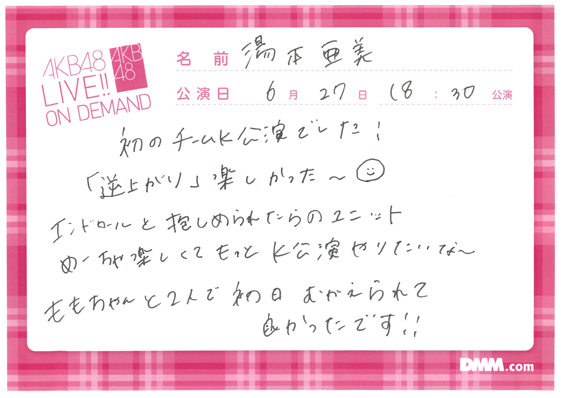 AKB48
LIVE!!
ON DEMAND
AKB
48
名前 湯本亜美
公演日 6月27日 18:30公演
初のチームK公演でした!
「逆上がり」楽しかった〜
エンドロールと抱しめられたらのユニット
めーちゃ楽しくてもっとK公演やりたいな〜
ももちゃんと2人で初日むかえられて
良かったです!!
DMM.com